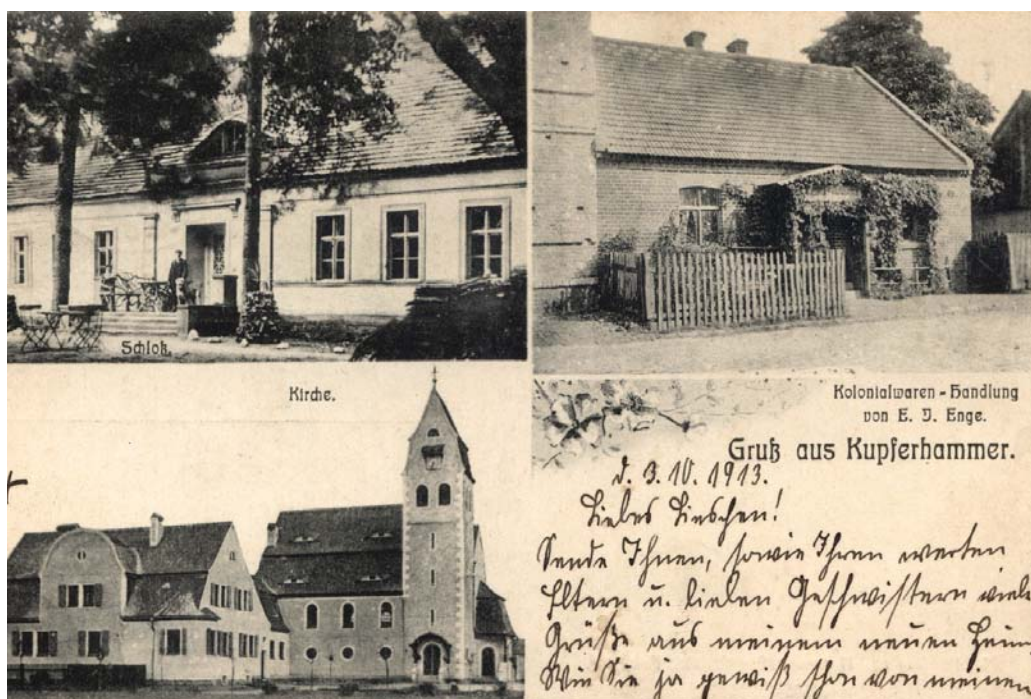 Schloß.
Kirche.
Kolonialwaren-Handlung
von E. J. Enge.
Gruß aus Kupferhammer.
d. 3.10.1913.
Liebes Lieschen!
Sende Ihnen, sowie Ihren werten
Eltern u. lieben Geschwistern viele
Grüße aus meinem neuen Heim.
Wie Sie ja gewiß schon von meinen